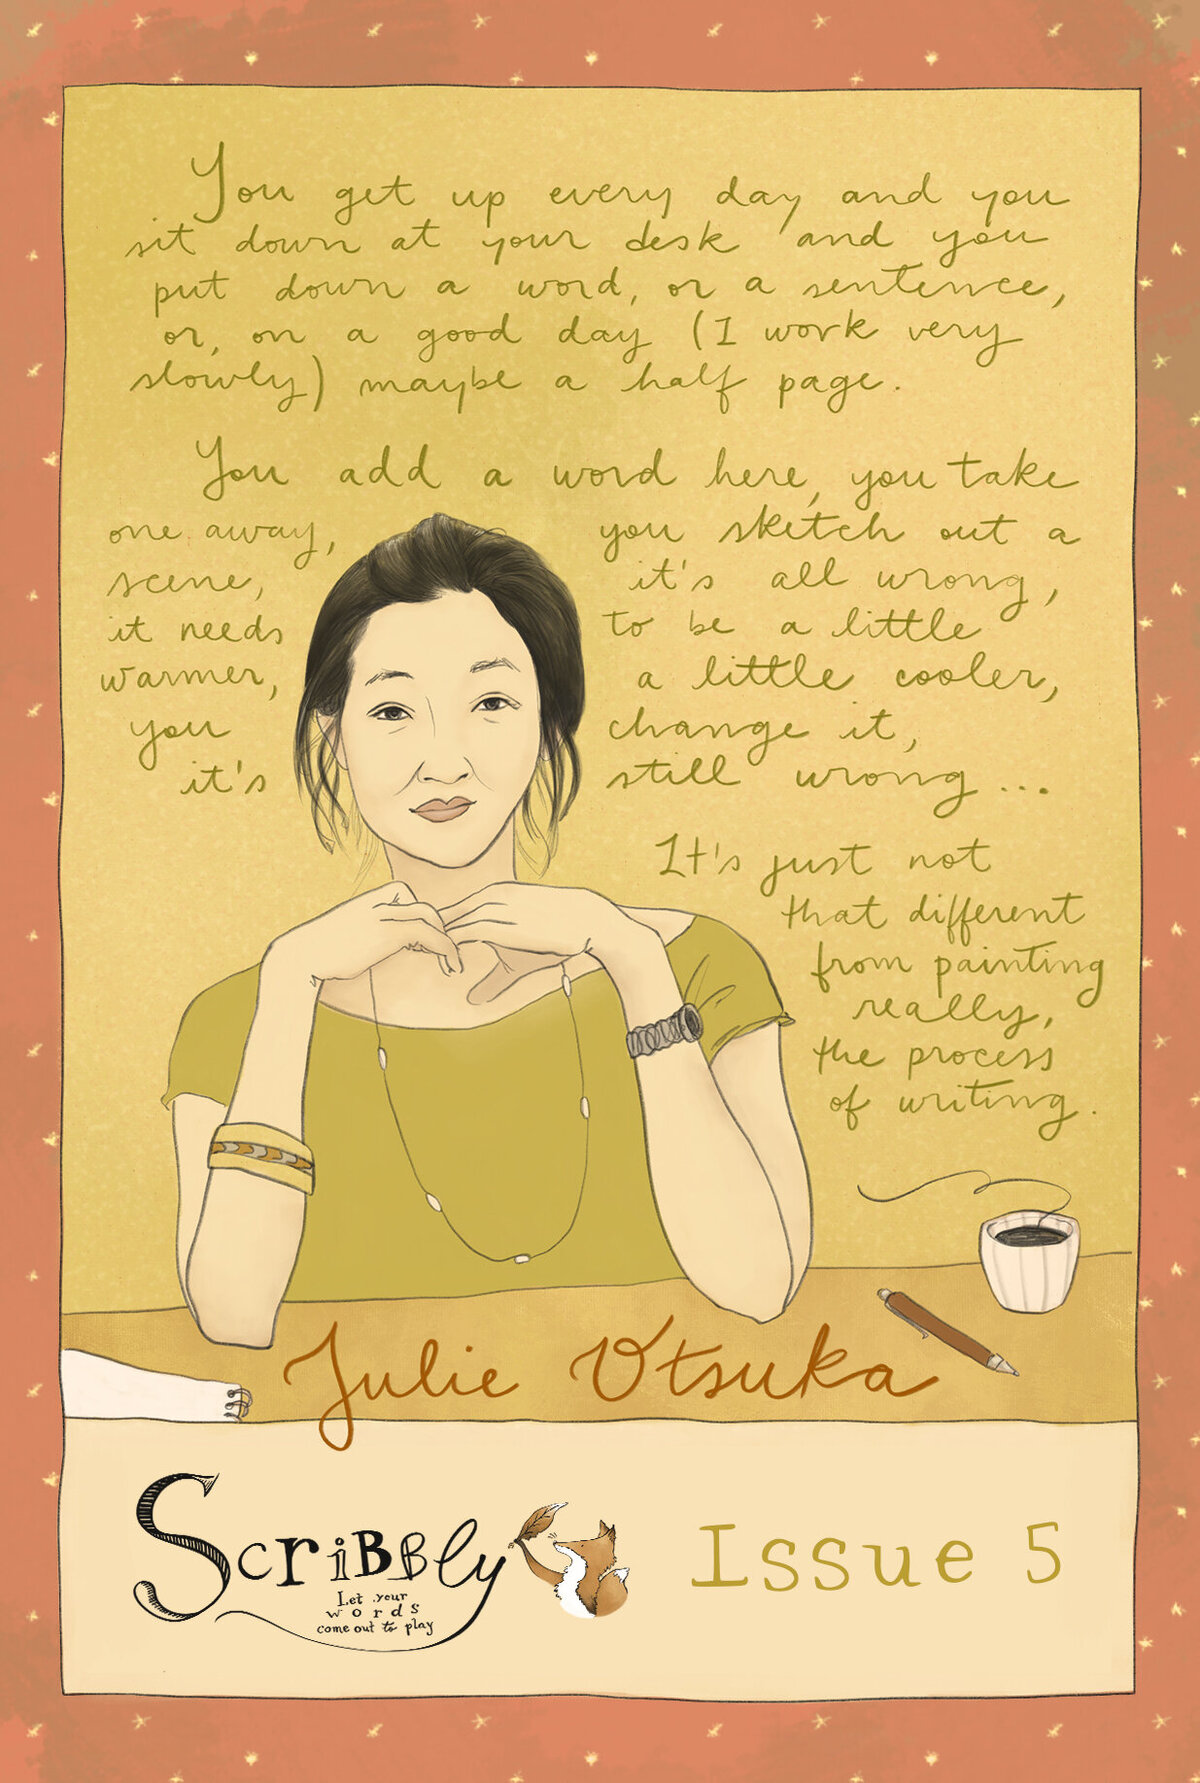 You get up every day and you
sit down at your desk and you
put down a word, or a sentence,
or, on a good day (I work very
slowly) maybe a half page.
You add a word here, you take
one away, you sketch out a
scene, it's all wrong,
it needs to be a little
warmer, a little cooler,
you change it,
it's still wrong...
It's just not
that different
from painting
really,
the process
of writing.
Julie Otsuka
Scribbly
Let your
words
come out to play
Issue 5